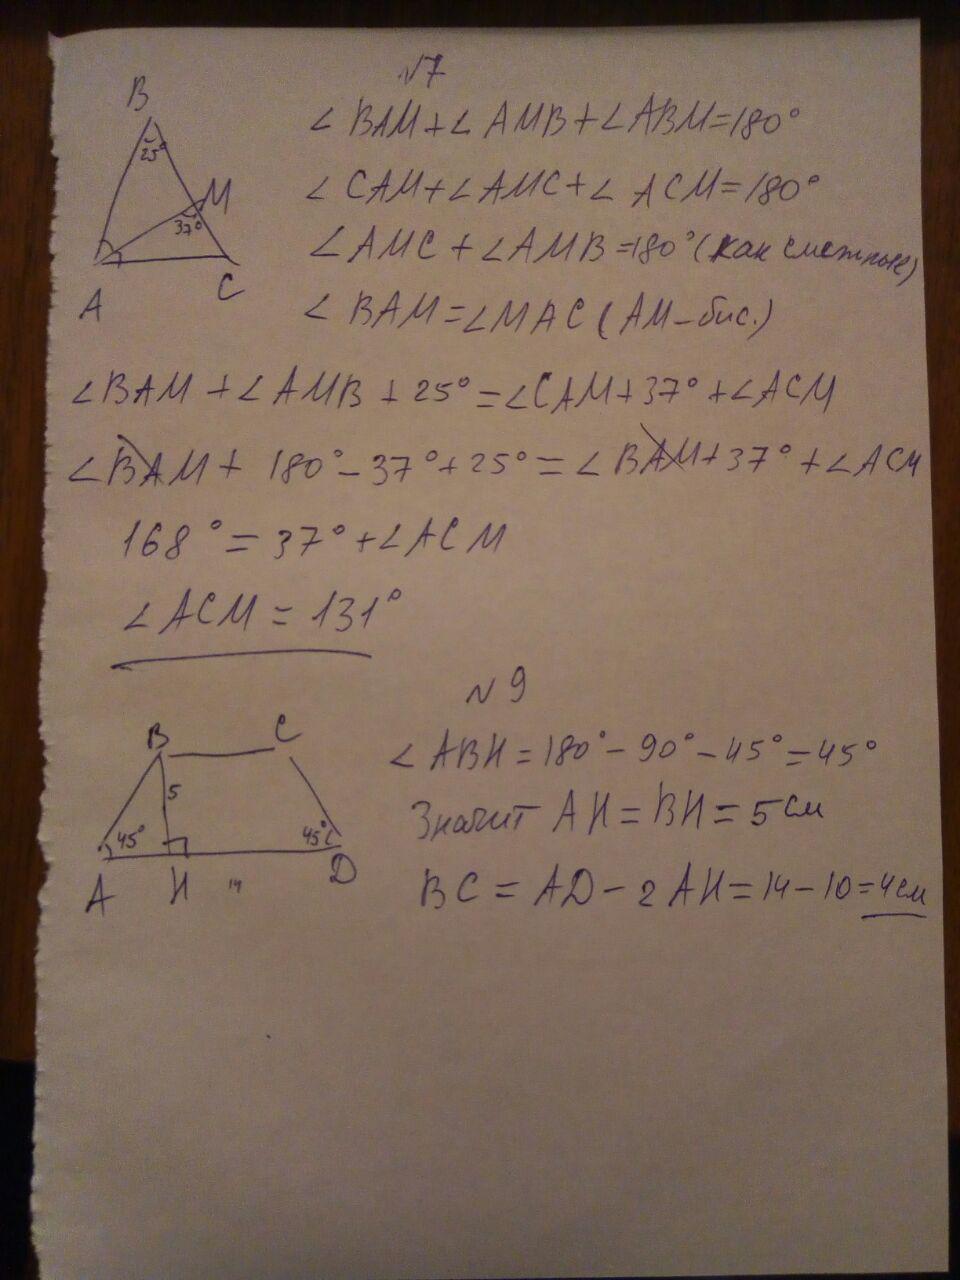 №7
B
25°
M
37°
A
C
∠BAM+∠AMB+∠ABM=180°
∠CAM+∠AMC+∠ACM=180°
∠AMC+∠AMB=180°(как смежные)
∠BAM=∠MAC(AM-бис.)
∠BAM+∠AMB+25°=∠CAM+37°+∠ACM
∠BAM+180°-37°+25°=∠BAM+37°+∠ACM
168°=37°+∠ACM
∠ACM=131°
№9
B
C
5
45°
45°
A
H
14
D
∠ABH=180°-90°-45°=45°
Значит AH=BH=5см
BC=AD-2AH=14-10=4см